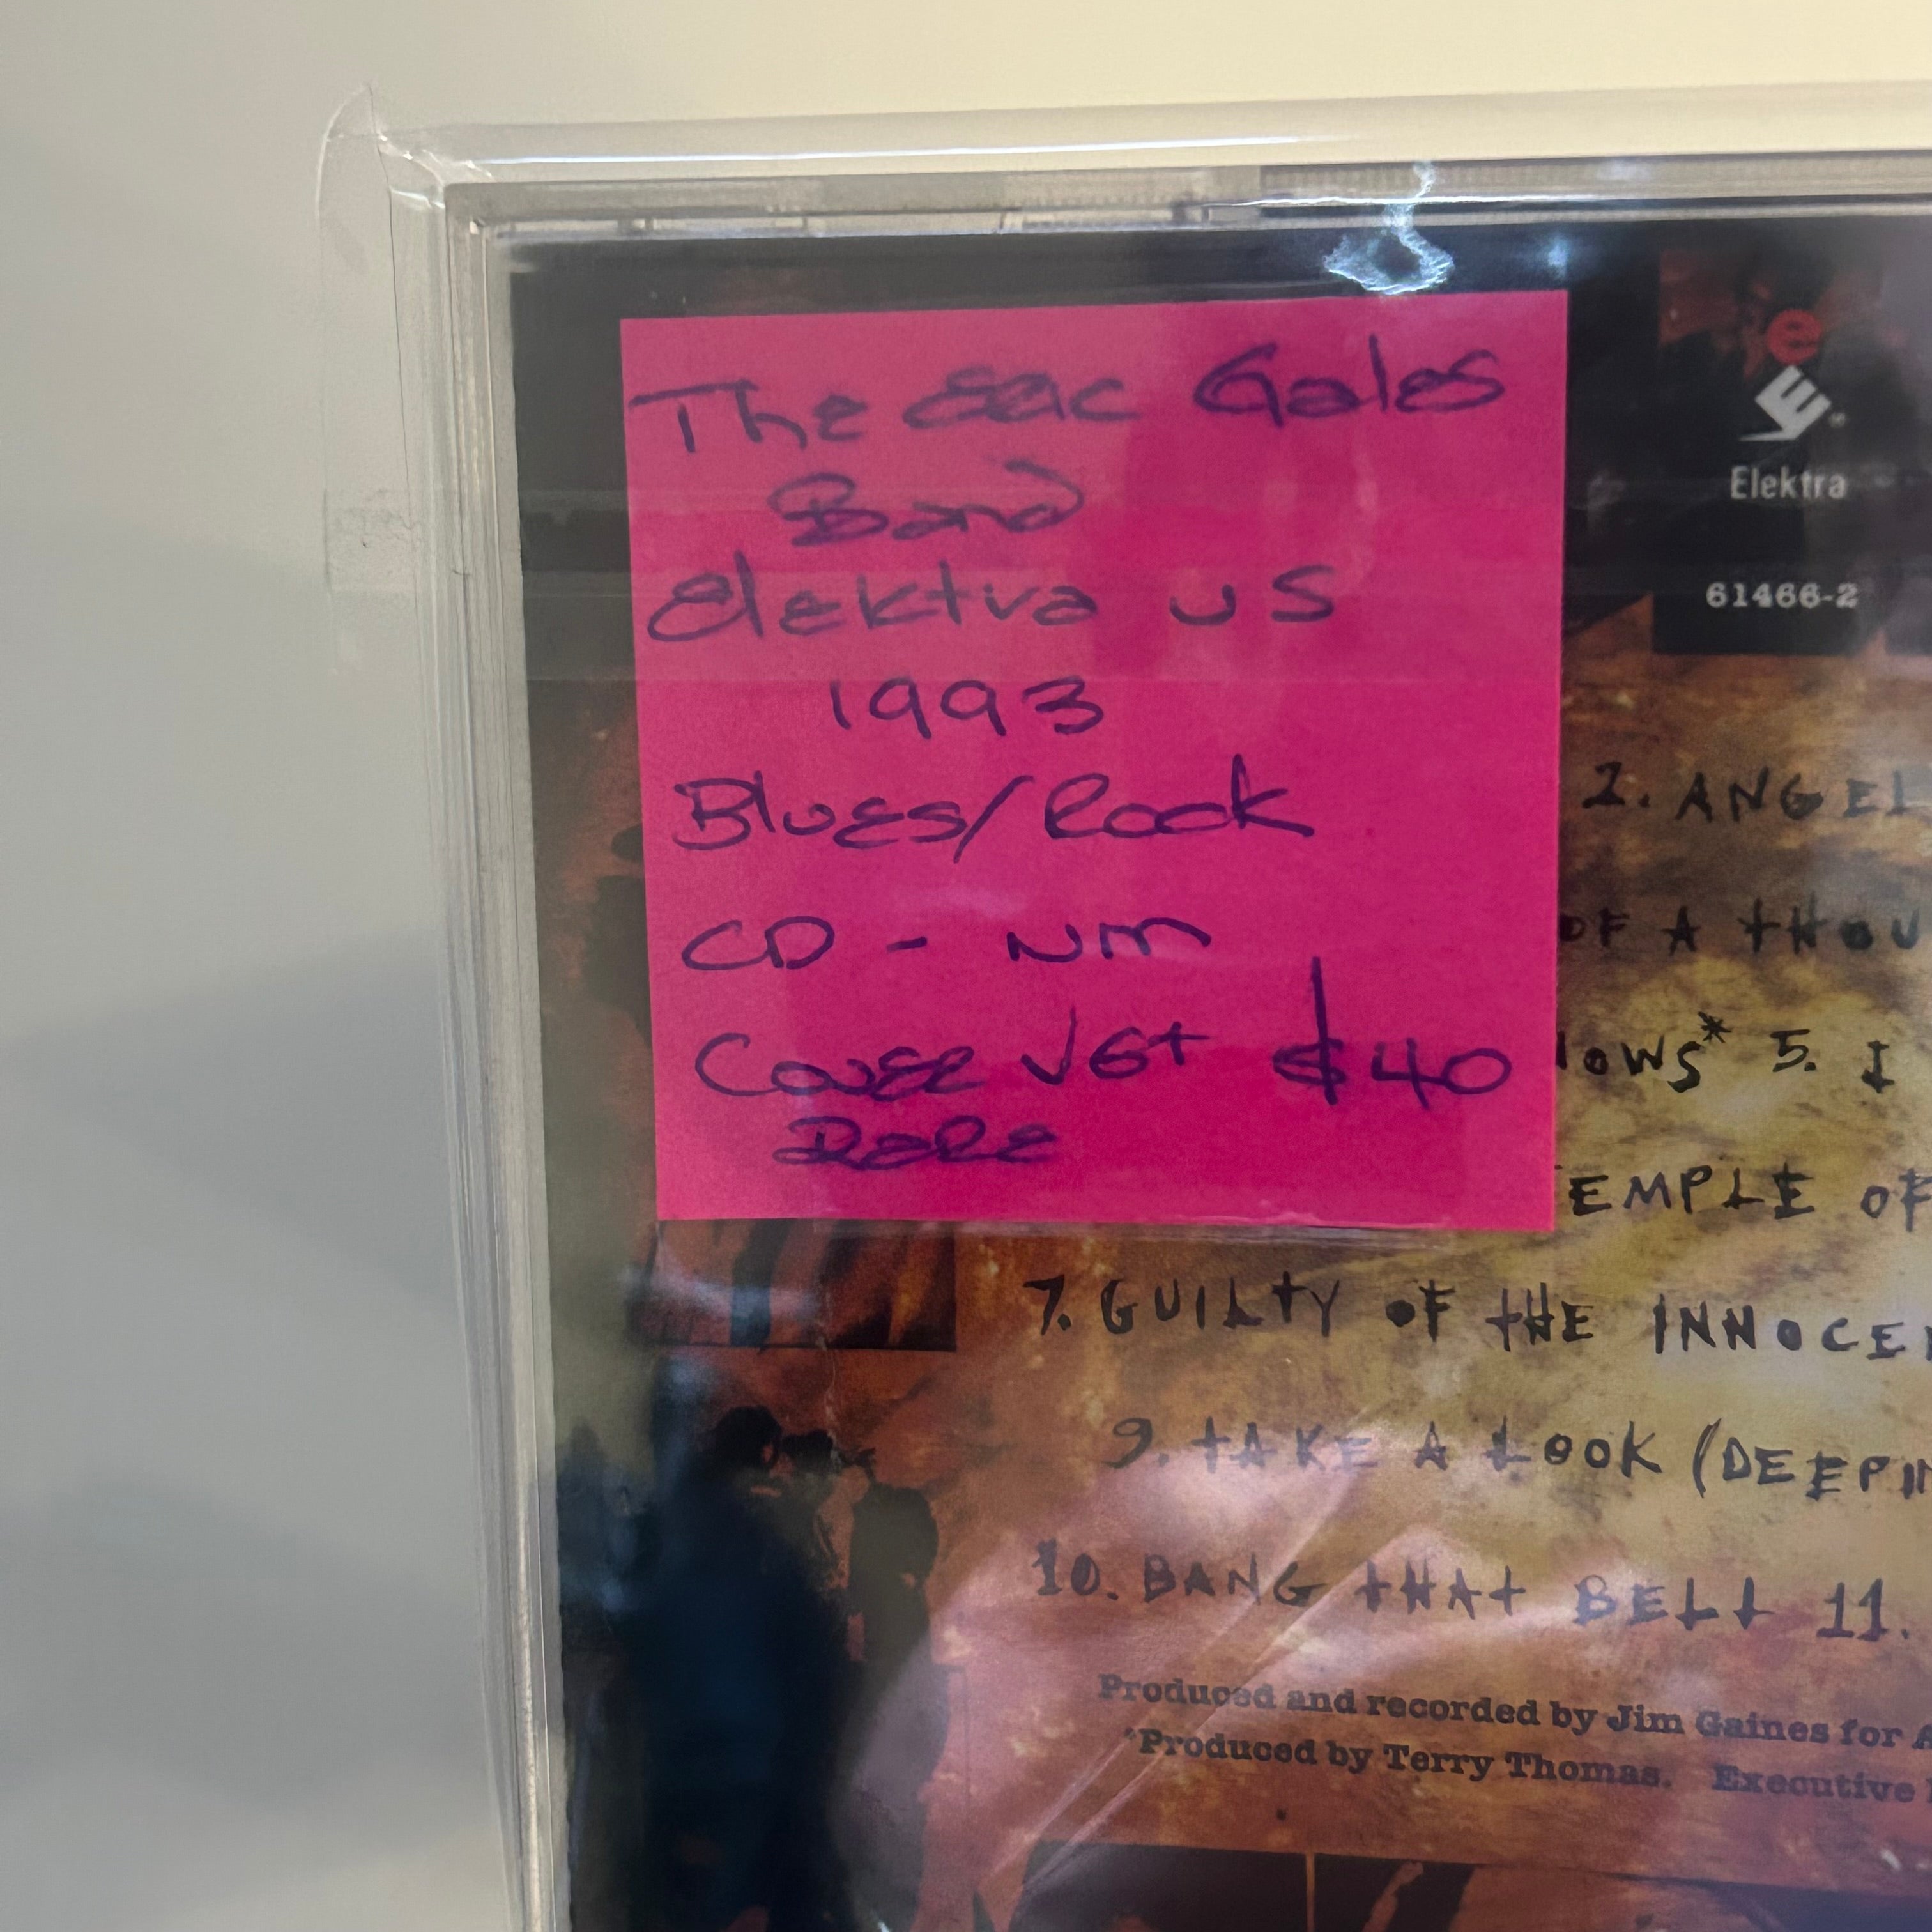 The Eric Gales
Band
Elektra US
1993
Blues/Rock
CD - NM
Cover VG+ $40
Rare
e
Elektra
61466-2
2. ANGEL
OF A THOU
5. I
EMPLE OF
7. GUILTY OF THE INNOCE
9. TAKE A LOOK (DEEP
10. BANG THAT BELL 11.
Produced and recorded by Jim Gaines for A
*Produced by Terry Thomas. Executive